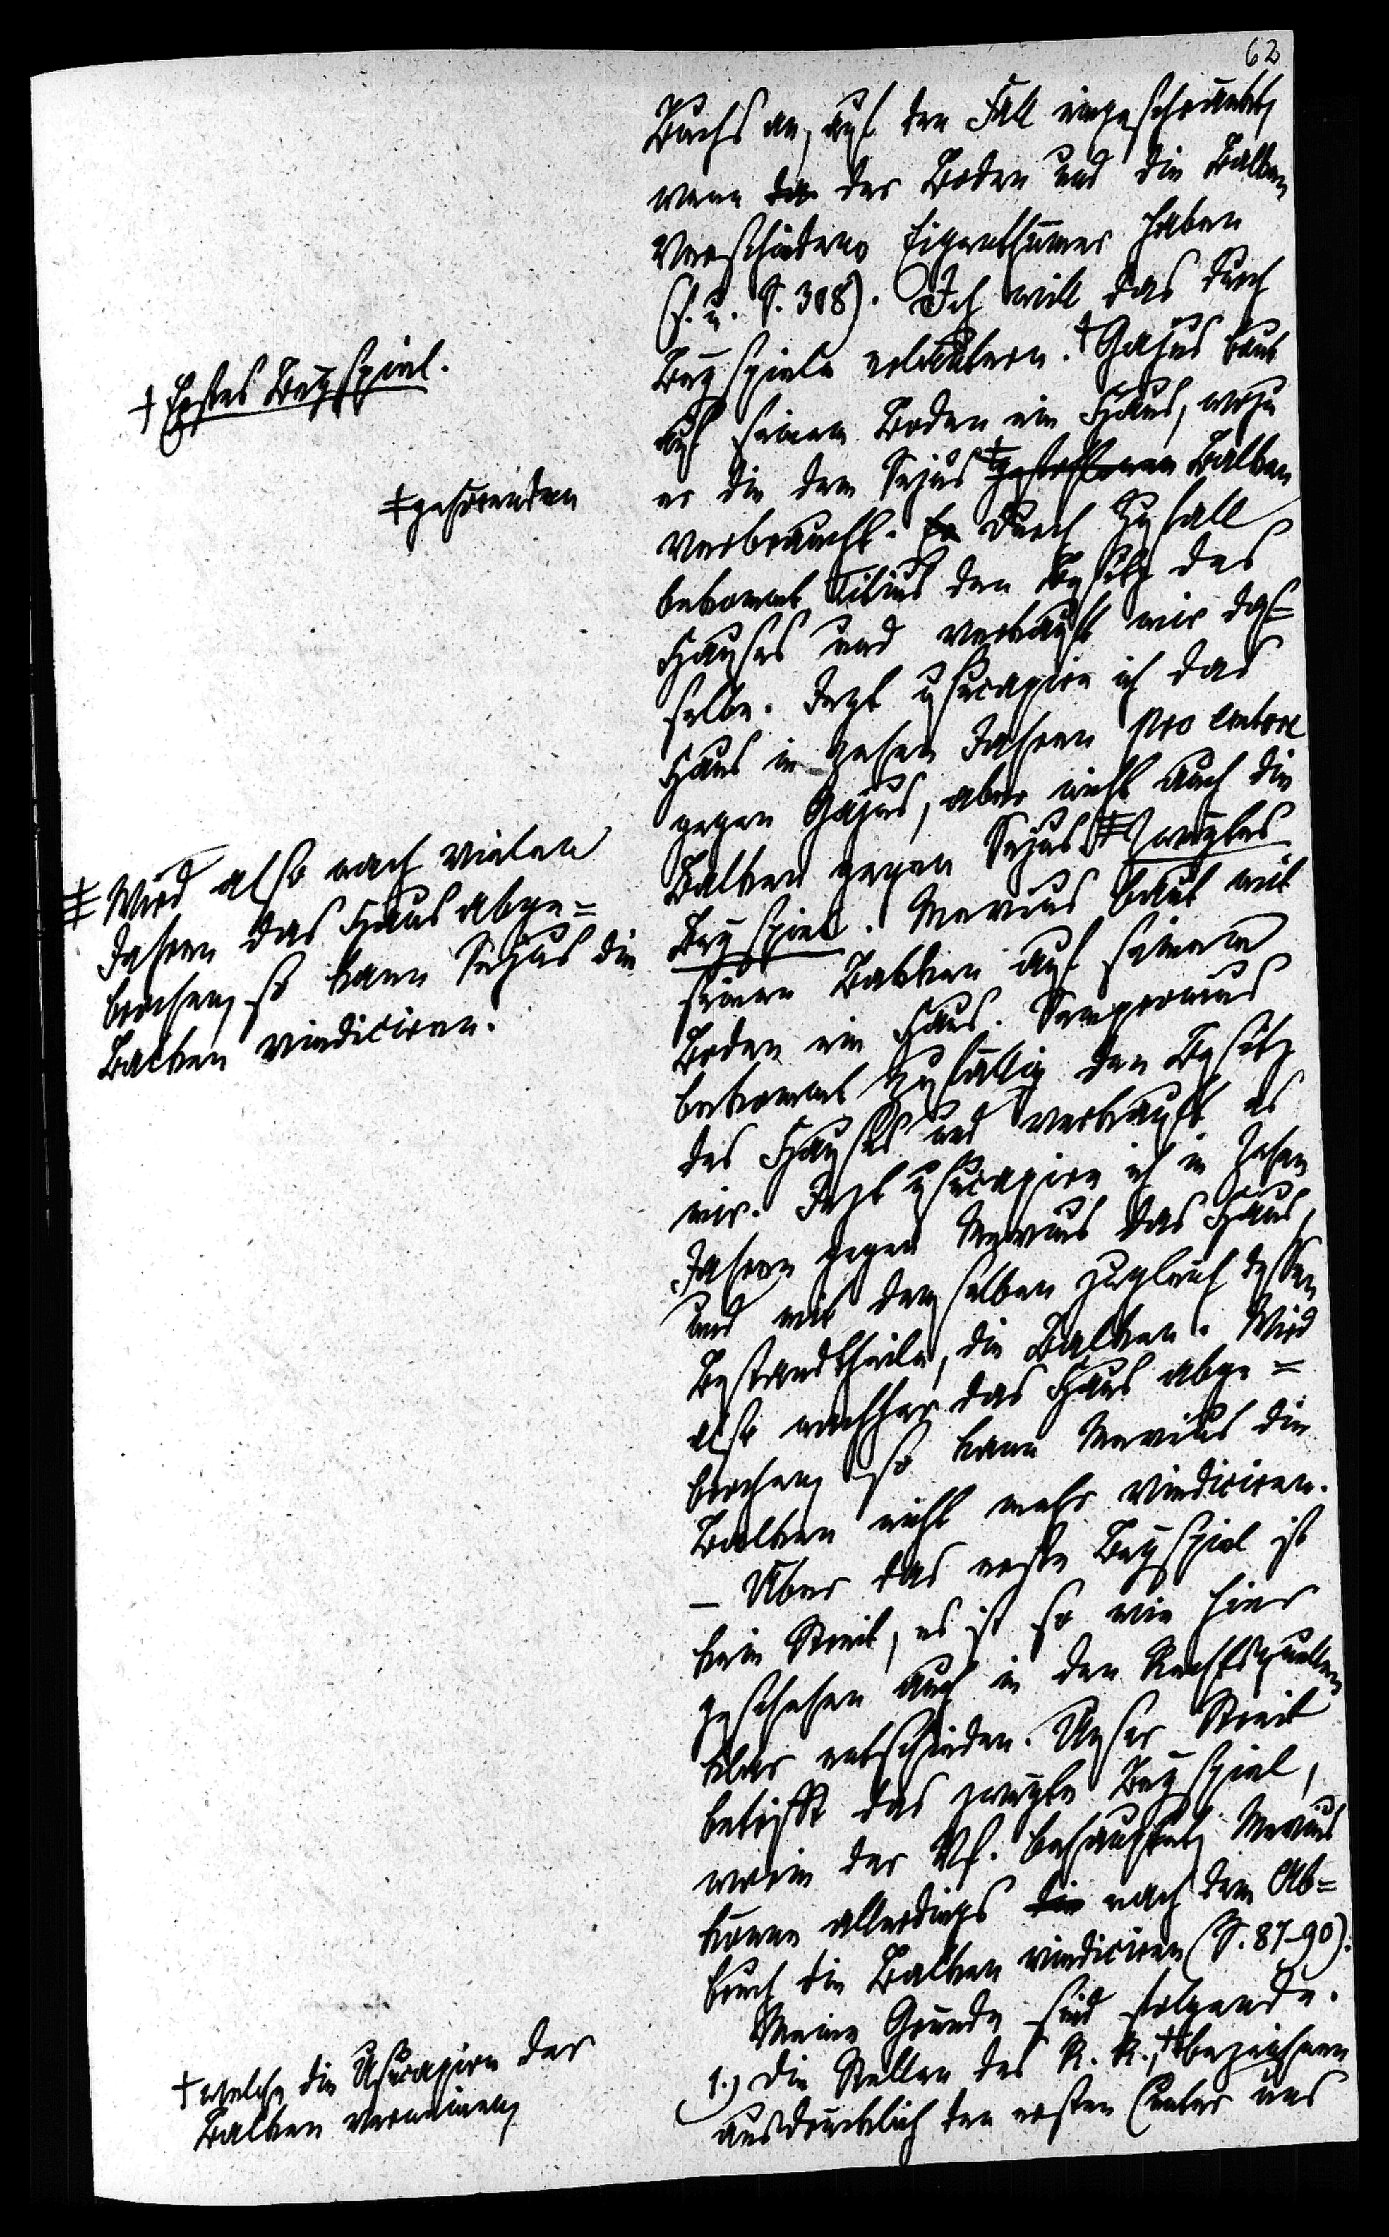 62
Buchs an, auf den Fall eingeschränkt,
wenn da der Boden und die Balken
verschiedene Eigenthümer haben
(s. u. S. 308). Ich will das durch
Beyspiele erläutern. ‡ Gajus baut
auf seinem Boden ein Haus, wozu
er die dem Sejus ‡ gestohlenen Balken
verbraucht. Er Durch Zufall
bekommt Titius den Besitz des
Hauses und verkauft mir das=
selbe. Jezt usucapire ich das
Haus in zehen Jahren pro emtore
gegen Gajus, aber nicht auch die
Balken gegen Sejus. ‡ Zweytes
Beyspiel. Mevius baut mit
seinen Balken auf seinem
Boden ein Haus. Sempronius
bekommt zufällig den Besitz
des Hauses und verkauft es
mir. Jezt usucapire ich in zehen
Jahren gegen Mevius das Haus,
und mit demselben zugleich dessen
Bestandtheile, die Balken. Wird
also nachher das Haus abge=
brochen, so kann Mevius die
Balken nicht mehr vindiciren.
– Über das erste Beyspiel ist
kein Streit, es ist so wie hier
geschehen auch in den Rechtsquellen
klar entschieden. Unser Streit
betrifft das zweyte Beyspiel,
worin der Vf. behauptet, Mevius
könne allerdings die nach dem Ab=
bruch die Balken vindiciren (S. 87–90).
Meine Gründe sind folgende.
1.) Die Stellen des R. R., † bezeichnen
ausdrücklich den ersten Casus und
† Erstes Beyspiel.
‡ gehörenden
‡ Wird also nach vielen
Jahren das Haus abge=
brochen, so kann Sejus die
Balken vindiciren.
† welche die Usucapion der
Balken verneinen,